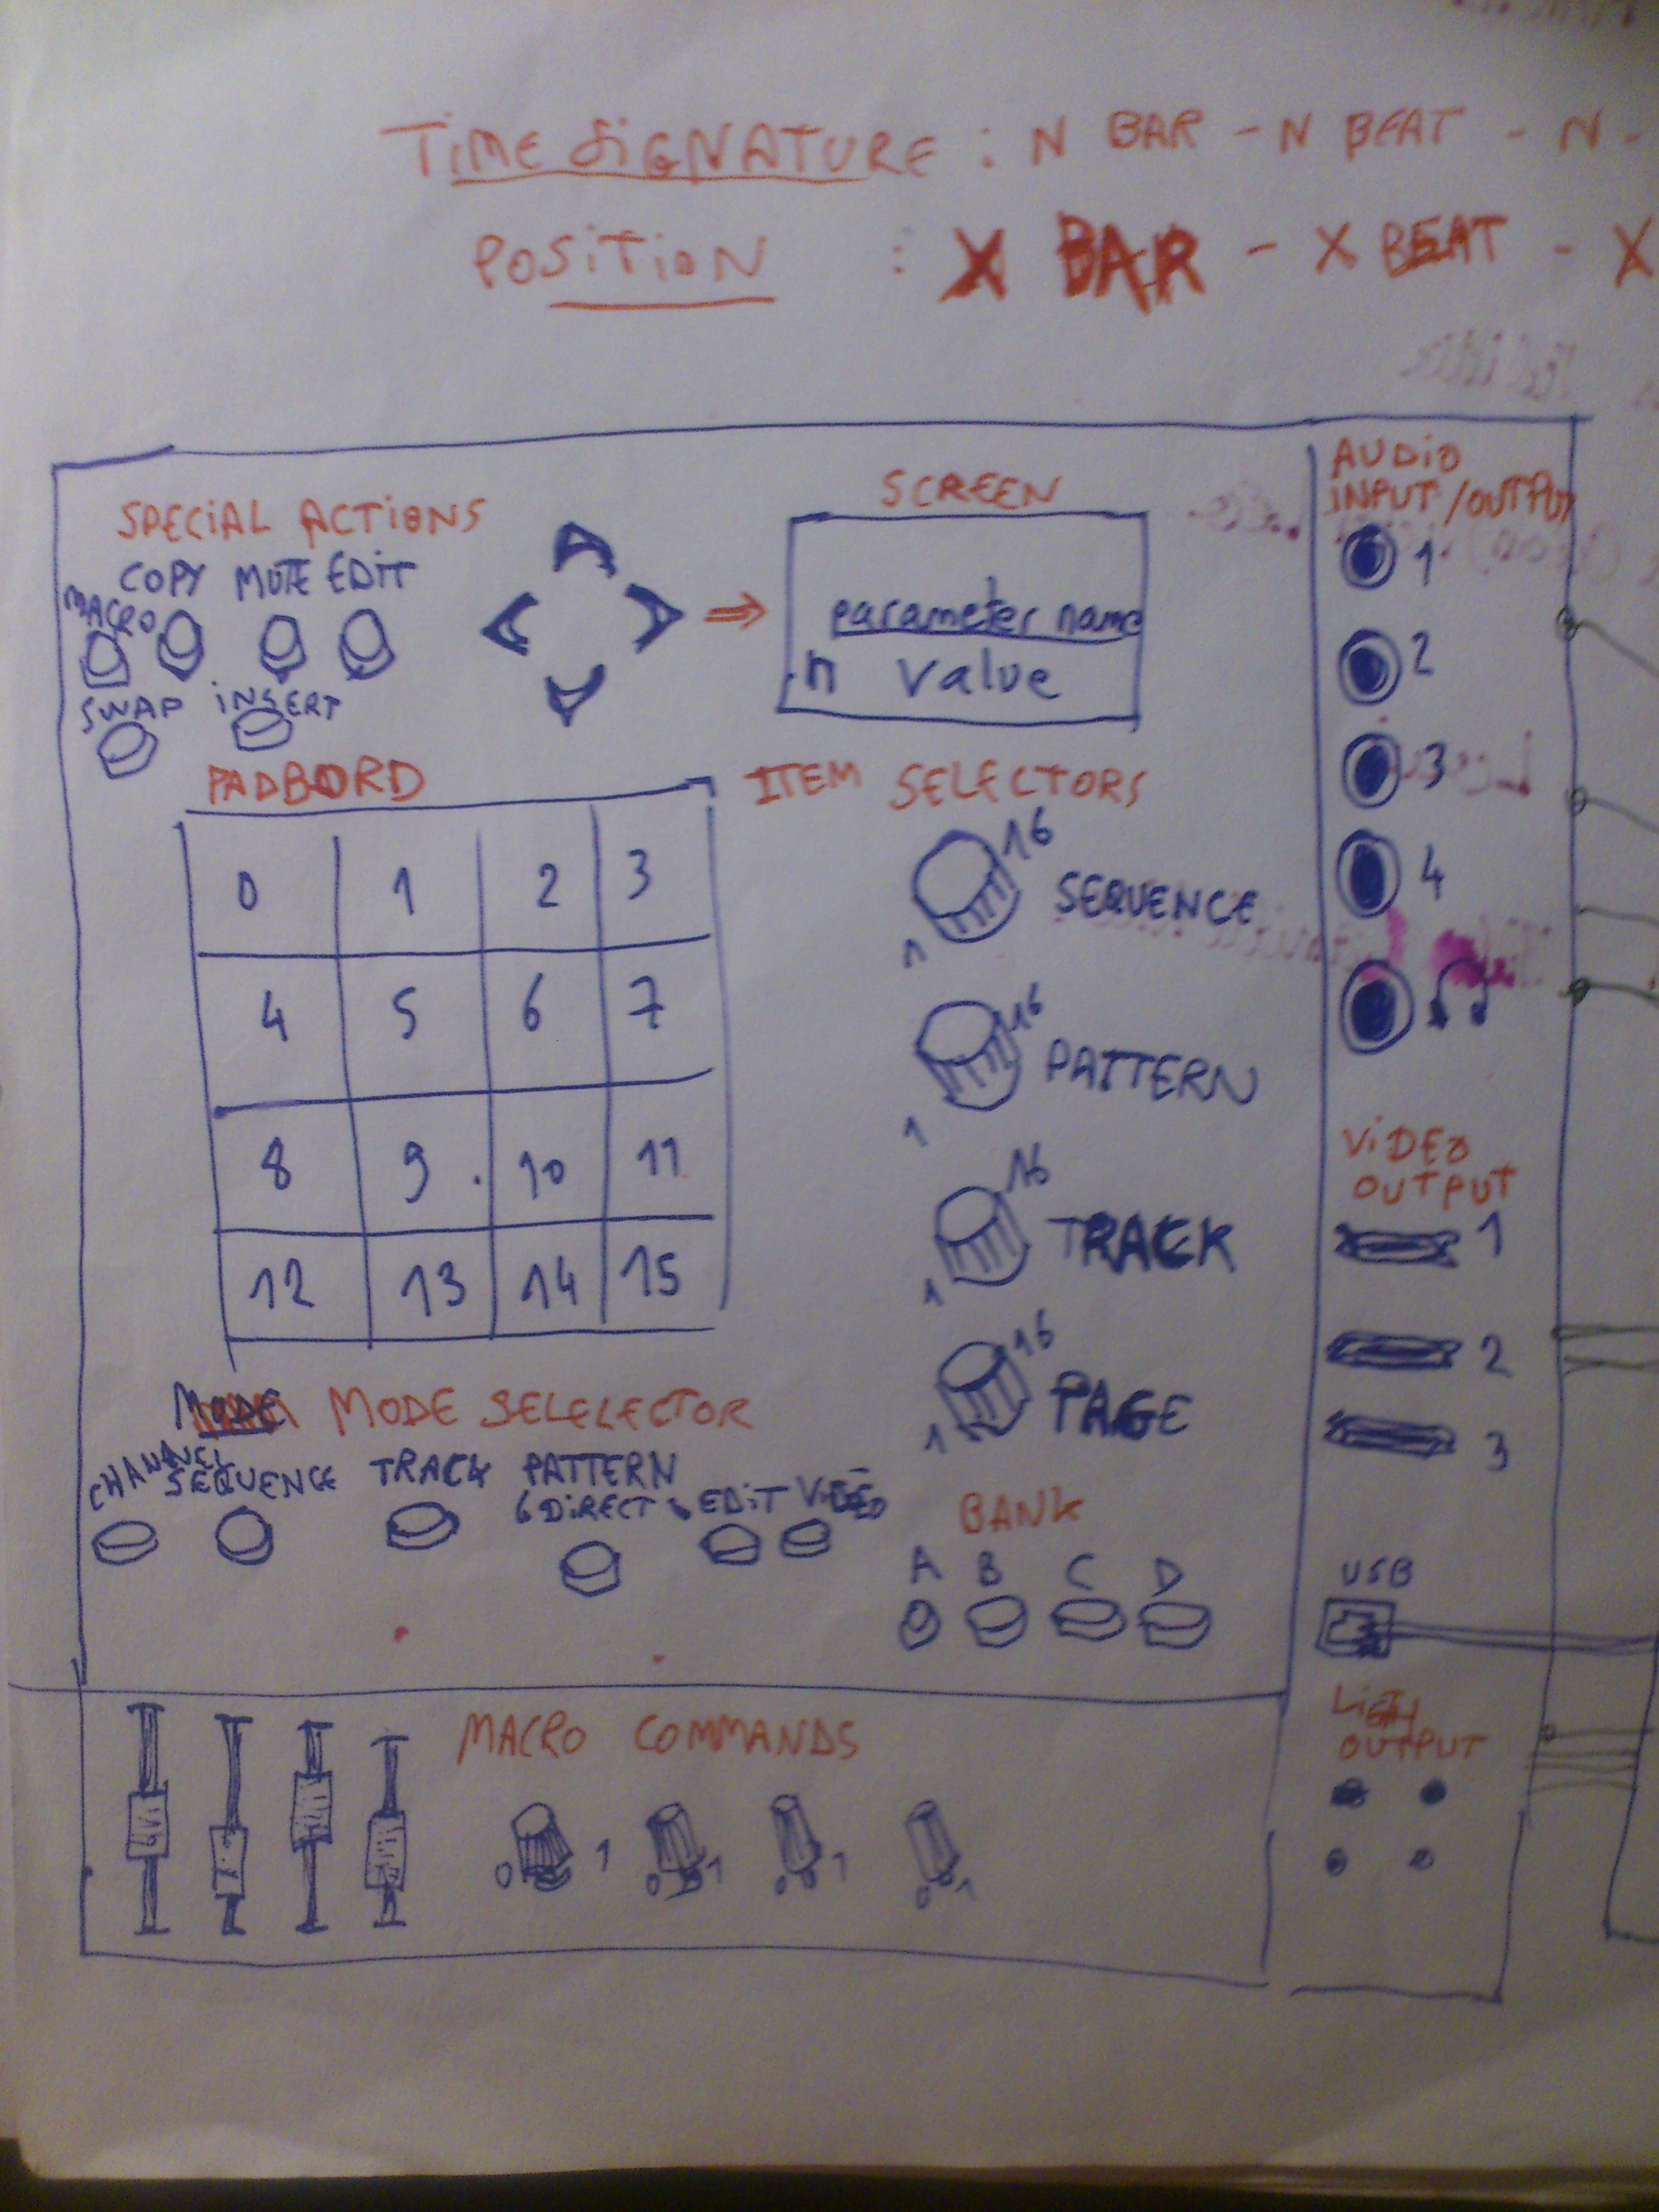 TIME SIGNATURE : N BAR - N BEAT - N -
POSITION : X BAR - X BEAT - X
SPECIAL ACTIONS
MACRO COPY MUTE EDIT
SWAP INSERT
SCREEN
parameter name
n value
PADBORD
0 1 2 3
4 5 6 7
8 9 10 11
12 13 14 15
ITEM SELECTORS
16
SEQUENCE
1
16
PATTERN
1
16
TRACK
1
16
PAGE
1
MODE MODE SELELECTOR
CHANNEL SEQUENCE TRACK PATTERN
DIRECT EDIT VIDEO
BANK
A B C D
MACRO COMMANDS
0 1 0 1 0 1 0 1
AUDIO
INPUT/OUTPUT
1
2
3
4
VIDEO
OUTPUT
1
2
3
USB
LIGTH
OUTPUT